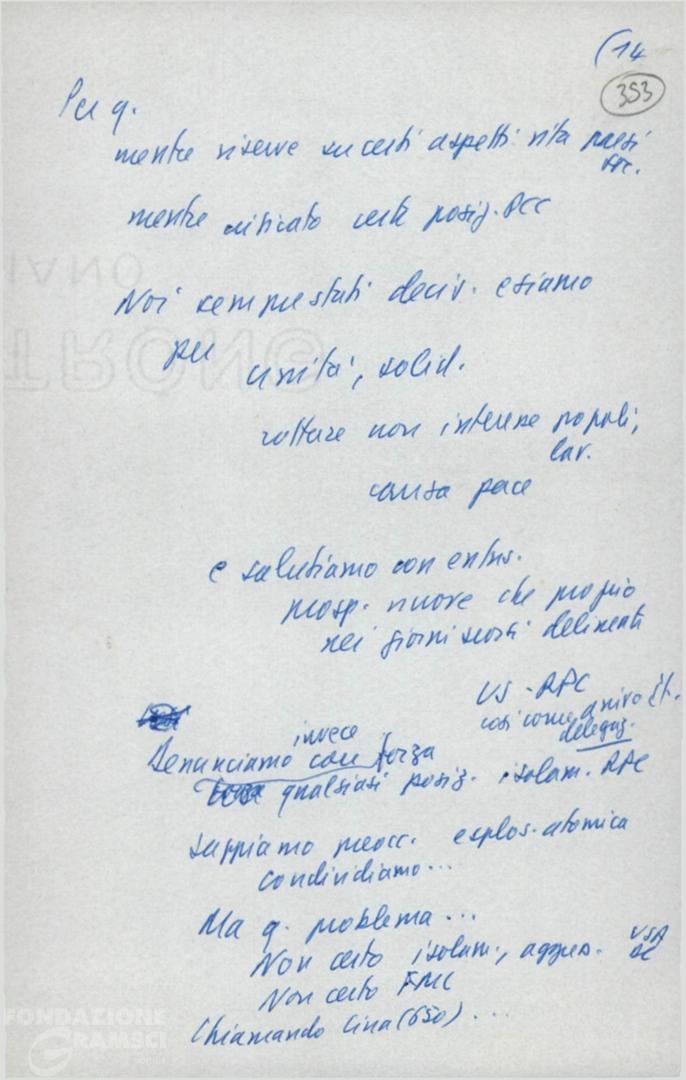 (14
353
Per q.
mentre riserve su certi aspetti vita paesi
soc.
mentre criticato certe posiz. PCC
Noi sempre stati deciv. e siamo
per
unità, solid.
rotture non interesse popoli,
lav.
causa pace
e salutiamo con entus.
prosp. nuove che proprio
nei giorni scorsi delineati
US - RPC
così come arrivo
delegaz.
invece
Denunciamo con forza
qualsiasi posiz. isolam. RPC
sappiamo preocc. esplos. atomica
condividiamo...
Ma q. problema...
Non certo isolam., aggres. USA
Non certo FMC
Chiamando Cina (650)...
IANO
TRONG
FONDAZIONE
GRAMSCI